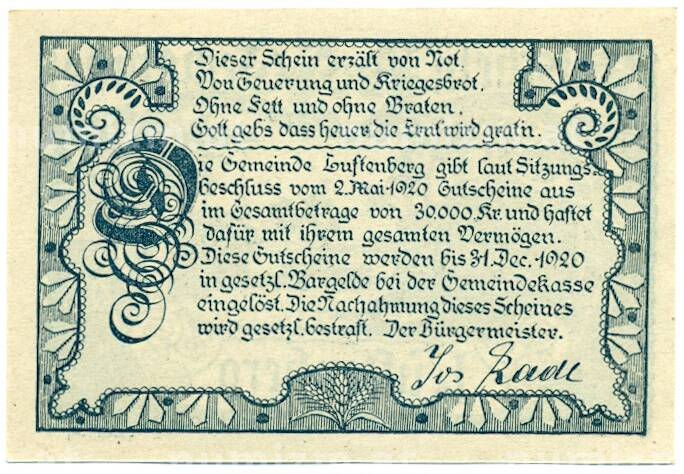 Dieser Schein erzält von Not.
Von Teuerung und Kriegesbrot,
Ohne Fett und ohne Braten,
Gott gebs dass heuer die Ernt wird gratn.
Die Gemeinde Luftenberg gibt laut Sitzungs-
beschluss vom 2. Mai 1920 Gutscheine aus
im Gesamtbetrage von 30.000 Kr. und haftet
dafür mit ihrem gesamten Vermögen.
Diese Gutscheine werden bis 31. Dec. 1920
in gesetzl. Bargelde bei der Gemeindekasse
eingelöst. Die Nachahmung dieses Scheines
wird gesetzl. bestraft. Der Bürgermeister.
Jos